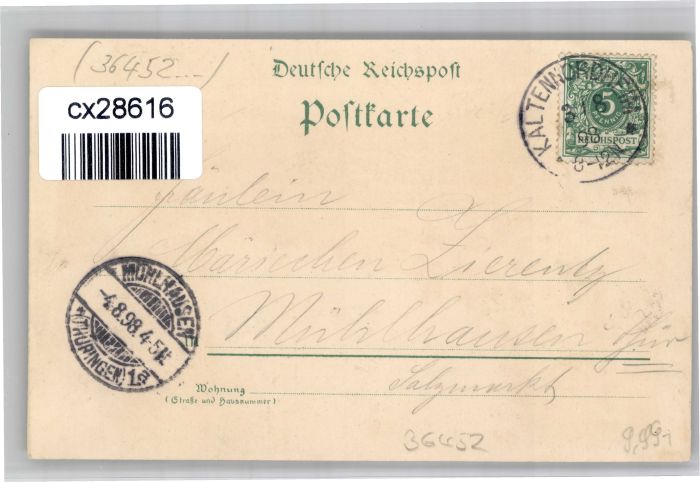 (36452...)
Deutsche Reichspost
Postkarte
cx28616
KALTENNORDHEIM
3 8
98
8-12N
5
PFENNIG
REICHSPOST
Fräulein
Mariechen Zierentz
Mühlhausen Thür
Salzmarkt
MÜHLHAUSEN
-4.8.98.4-5N.
(THÜRINGEN) 1a
Wohnung
(Straße und Hausnummer)
36452
9,99